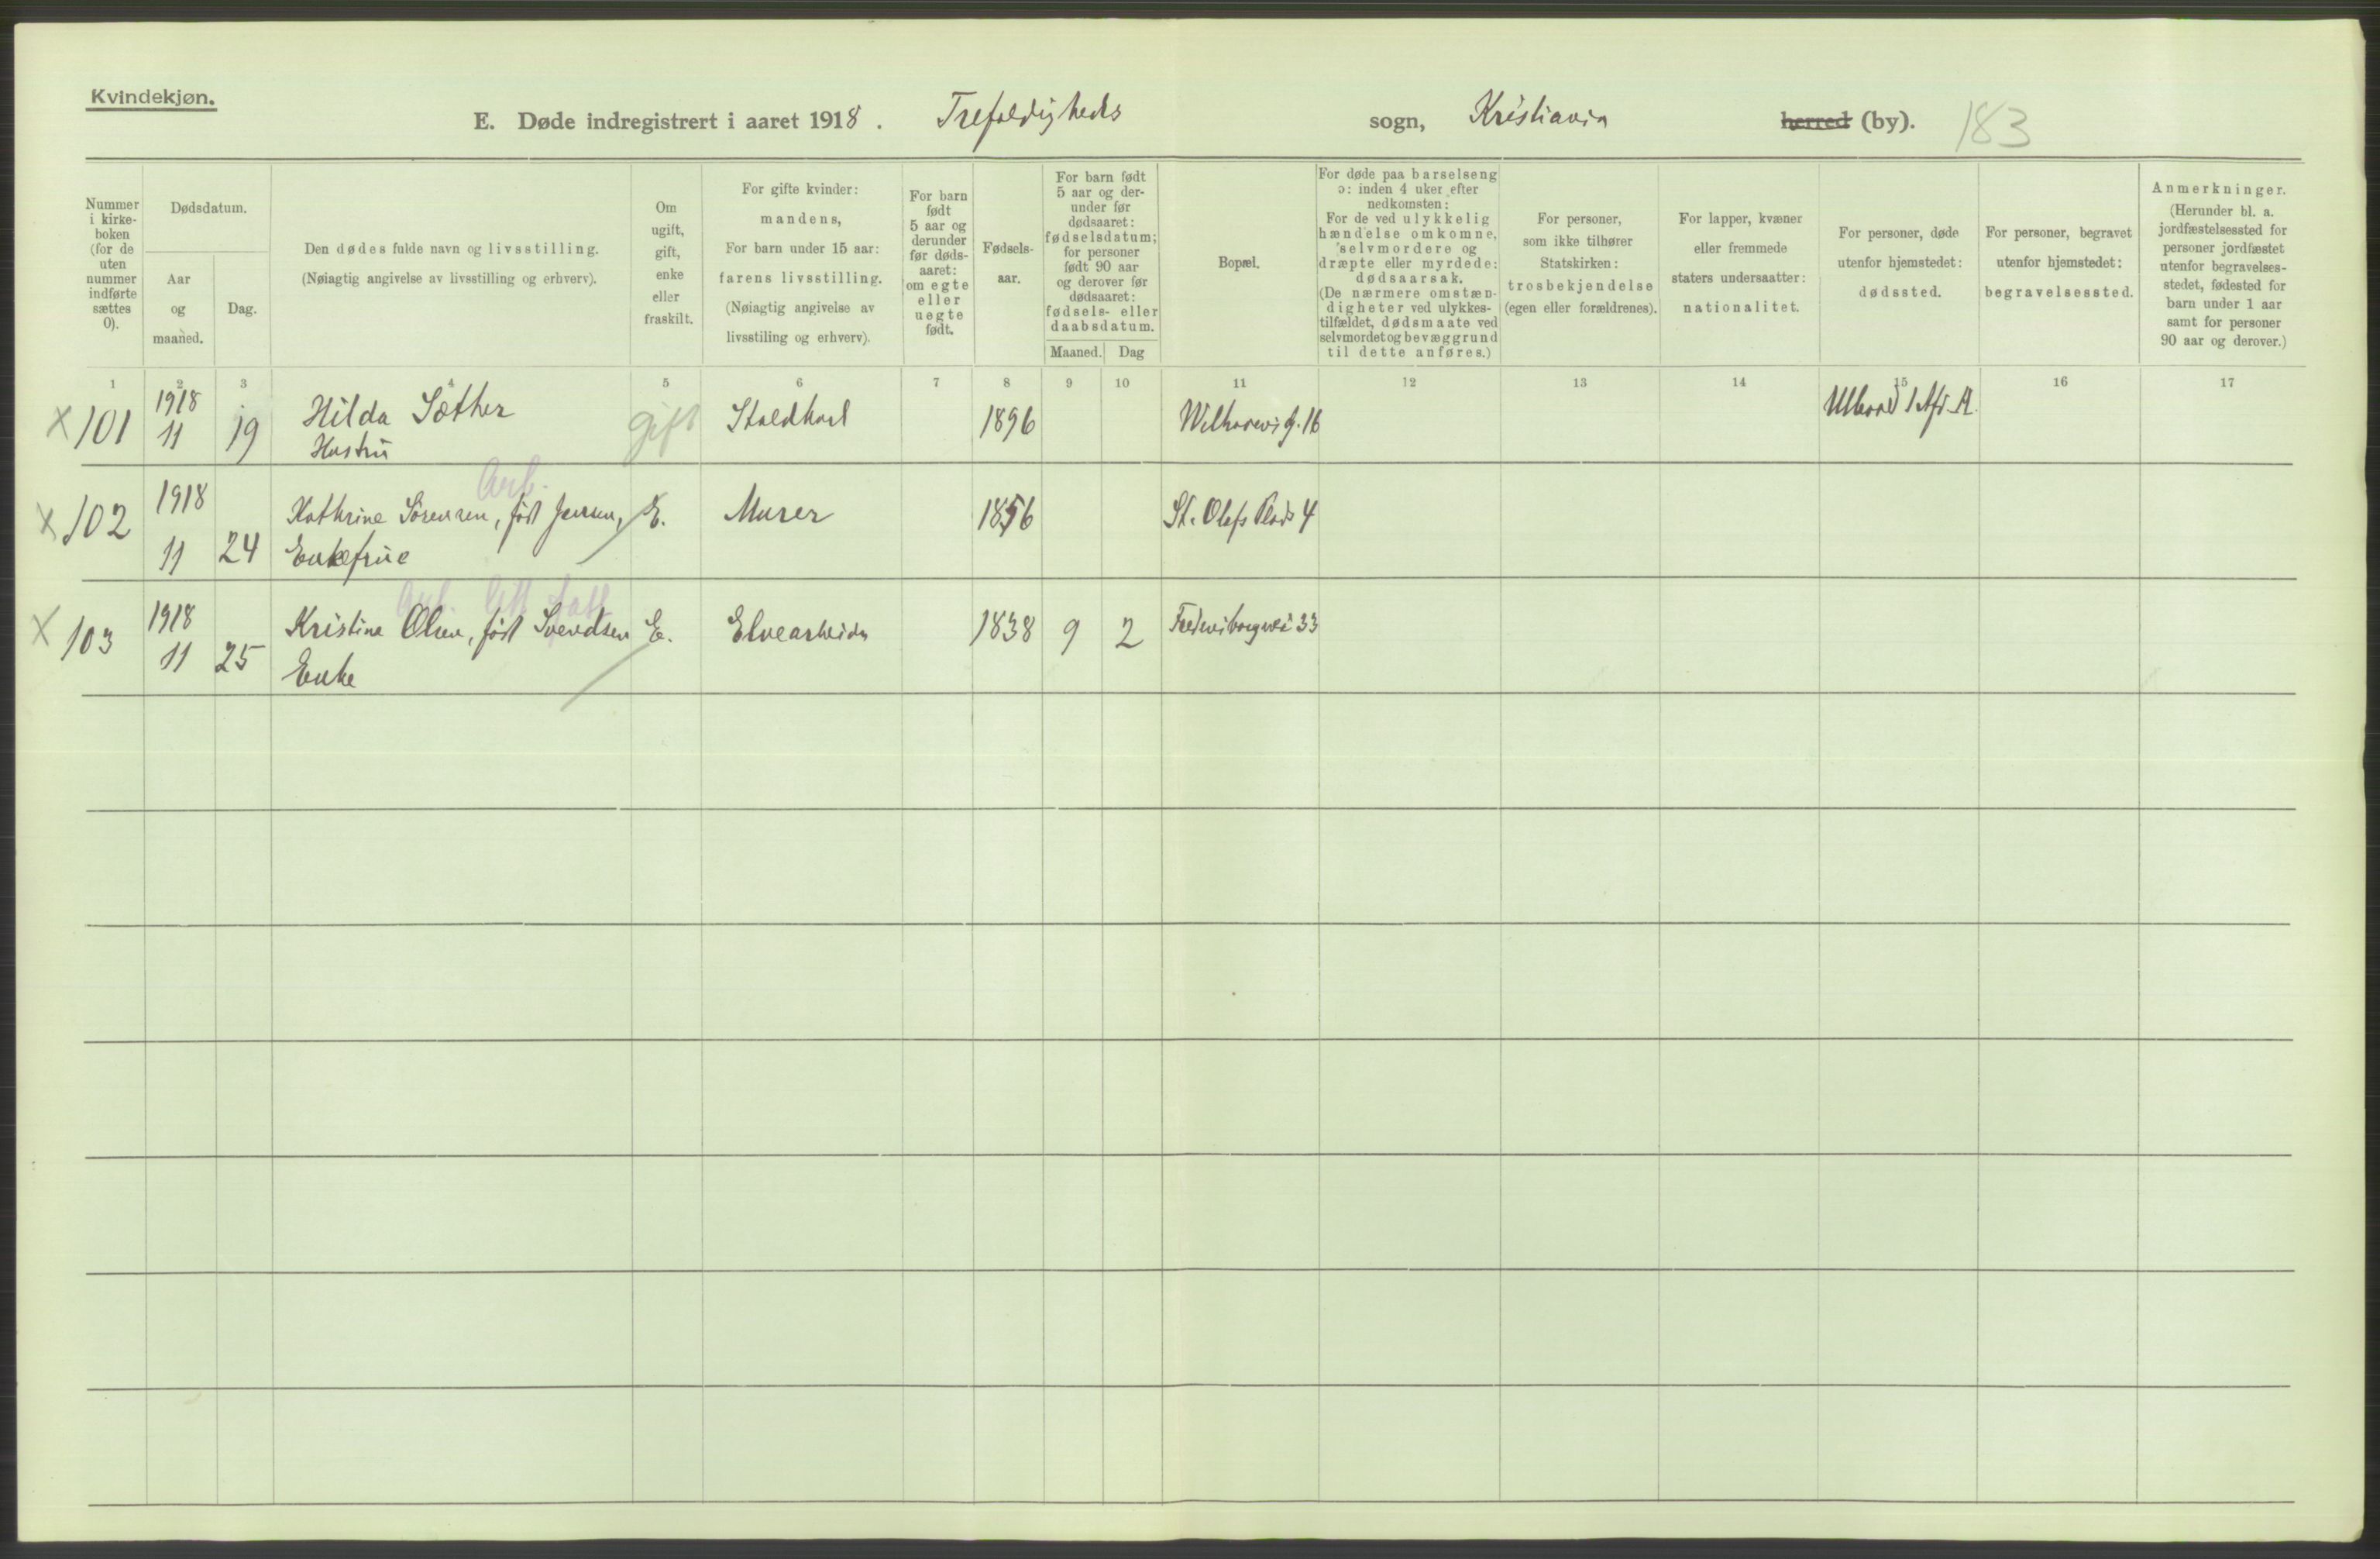 Kvindekjøn.
E. Døde indregistrert i aaret 1918. Trefoldigheds sogn, Kristiania herred (by). 183
Nummer i kirkeboken (for de uten nummer indførte sættes 0).
Dødsdatum.
Aar og maaned.
Dag.
Den dødes fulde navn og livsstilling.
(Nøiagtig angivelse av livsstilling og erhverv).
Om ugift, gift, enke eller fraskilt.
For gifte kvinder:
mandens,
For barn under 15 aar:
farens livsstilling.
(Nøiagtig angivelse av
livsstiling og erhverv).
For barn født 5 aar og derunder før dødsaaret: om egte eller uegte født.
Fødselsaar.
For barn født 5 aar og derunder før dødsaaret: fødselsdatum; for personer født 90 aar og derover før dødsaaret: fødsels- eller daabsdatum.
Maaned. Dag
Bopæl.
For døde paa barselseng
ɔ: inden 4 uker efter
nedkomsten:
For de ved ulykkelig
hændelse omkomne,
selvmordere og
dræpte eller myrdede:
dødsaarsak.
(De nærmere omstæn-
digheter ved ulykkes-
tilfældet, dødsmaate ved
selvmordet og bevæggrund
til dette anføres.)
For personer,
som ikke tilhører
Statskirken:
trosbekjendelse
(egen eller forældrenes).
For lapper, kvæner
eller fremmede
staters undersaatter:
nationalitet.
For personer, døde
utenfor hjemstedet:
dødssted.
For personer, begravet
utenfor hjemstedet:
begravelsessted.
Anmerkninger.
(Herunder bl. a.
jordfæstelsessted for
personer jordfæstet
utenfor begravelses-
stedet, fødested for
barn under 1 aar
samt for personer
90 aar og derover.)
1 2 3 4 5 6 7 8 9 10 11 12 13 14 15 16 17
x 101 1918 11 19 Hilda Sæther gift Staldkarl 1896 g. 16 1 Afd. A.
Hustru
Arb.
x 102 1918 11 24 Kathrine Sørensen, født Jensen, E. Murer 1856 St. Olafs Plads 4
Enkefrue
Arb.
x 103 1918 11 25 Kristine Olsen, født Svendsen E. Elvearbeider 1838 9 2 33
Enke